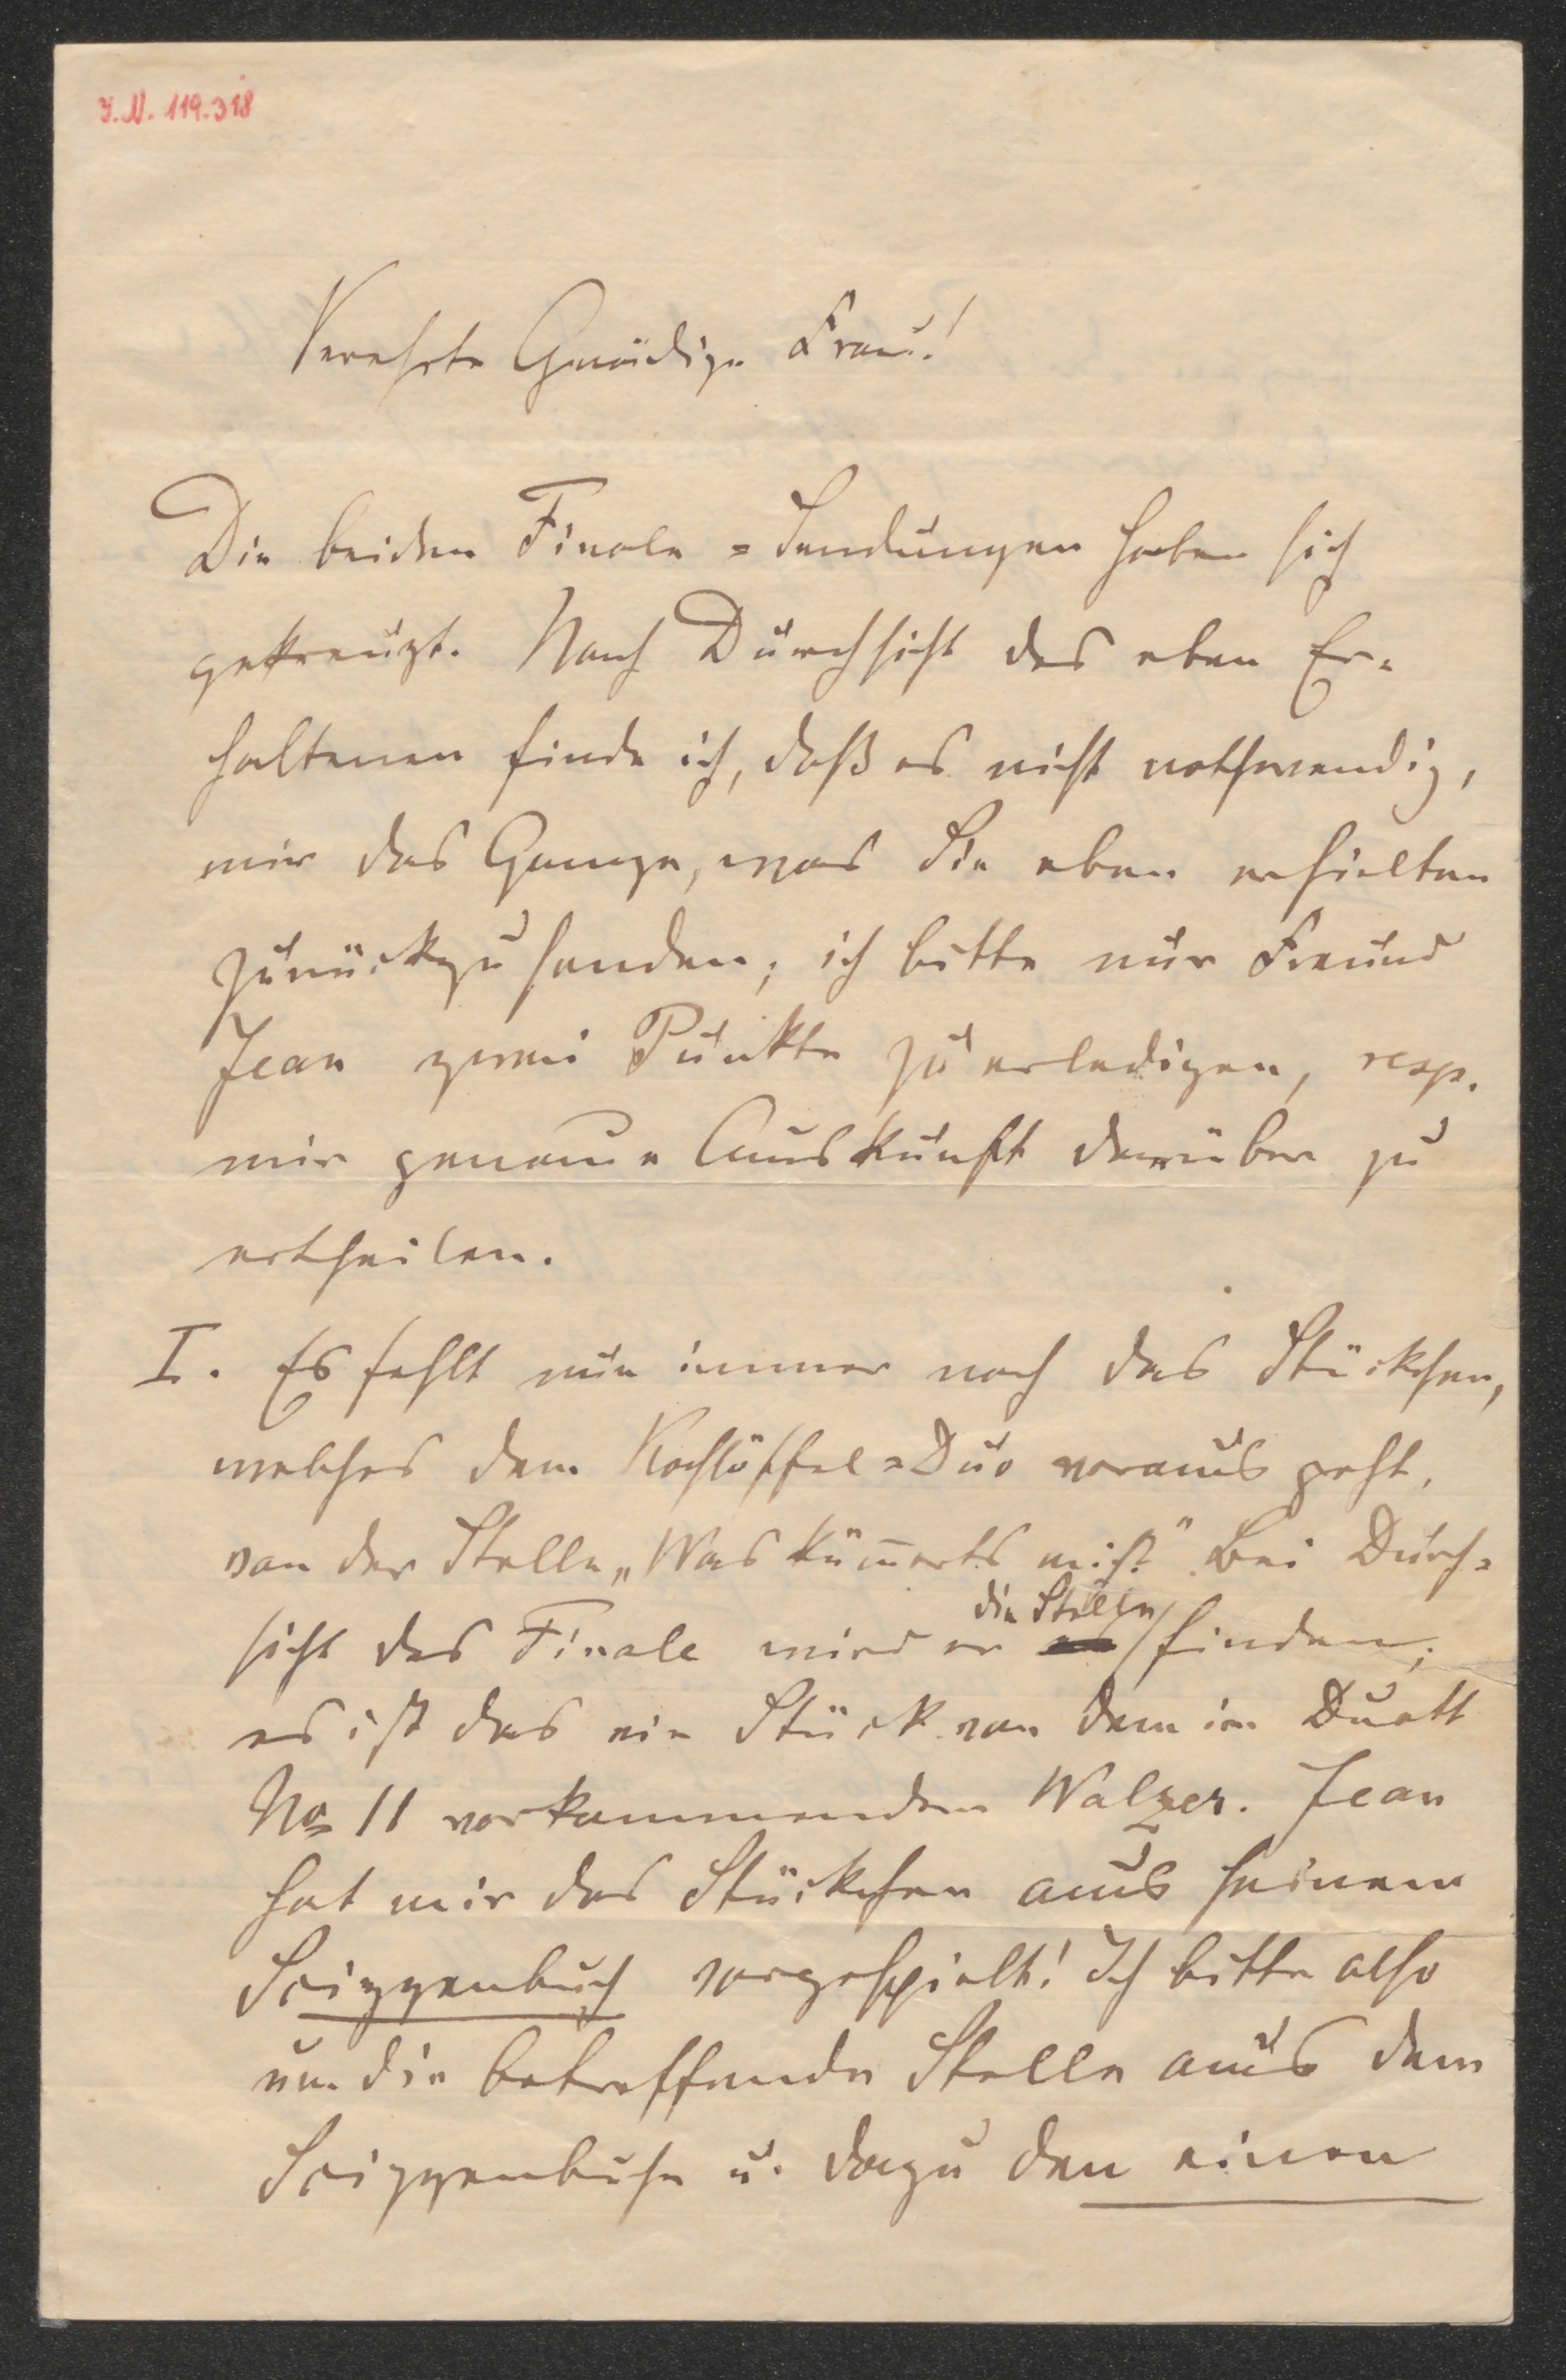 I.N. 119.318
Verehrte Gnädige Frau!
Die beiden Finale-Sendungen haben sich
gekreuzt. Nach Durchsicht des eben Er-
haltenen finde ich, daß es nicht nothwendig,
mir das Ganze, was Sie eben erhielten
zurückzusenden; ich bitte nur Freund
Jean zwei Punkte zu erledigen, resp.
mir genaue Auskunft darüber zu
ertheilen.
I. Es fehlt nun immer noch das Stückchen,
welches dem Kochlöffel-Duo voraus geht,
von der Stelle „Was kümerts mich". Bei Durch-
die Stelle
sicht des Finale wird er finden;
es ist das ein Stück von dem im Duett
No 11 vorkommenden Walzer. Jean
hat mir das Stückchen aus seinem
Scizzenbuch vorgespielt! Ich bitte also
um die betreffende Stelle aus dem
Scizzenbuche u. dazu den einen